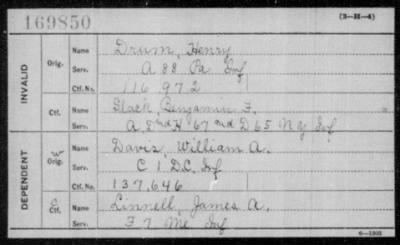 169850
(3—M—4)
INVALID
Orig.
Name Drum, Henry
Serv. A 88 Pa Inf
Ctf. No. 116 972
Ctf.
Name Black, Benjamin F.
Serv. A 2nd H 67 and D 65 N Y Inf
DEPENDENT
W
Orig.
Name Davis, William A.
Serv. C 1 D.C. Inf
Ctf. No. 137,646
C
Ctf.
Name Linnell, James A.
Serv. F 7 Me Inf
6—1903